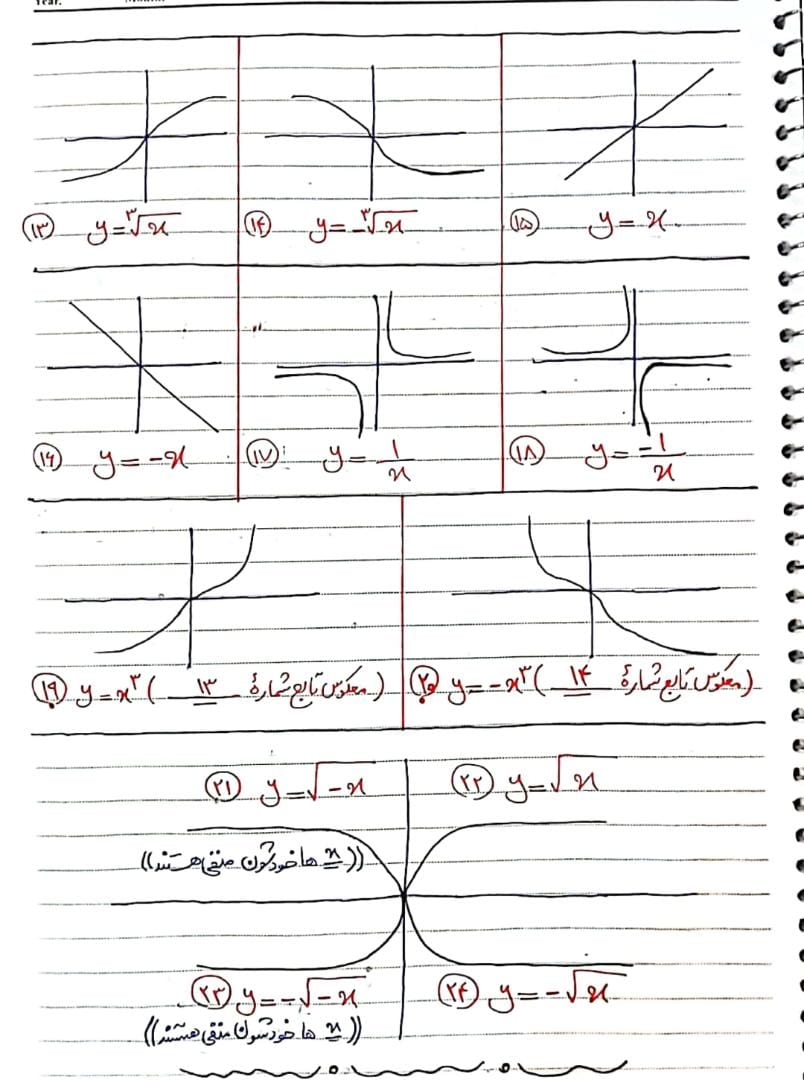 Year.
۱۳ y = ³√x
۱۴ y = -³√x
۱۵ y = x
۱۶ y = -x
۱۷ y = 1/x
۱۸ y = -1/x
۱۹ y = x³ (معکوس تابع شمارهٔ ۱۳)
۲۰ y = -x³ (معکوس تابع شمارهٔ ۱۴)
۲۱ y = √-x
۲۲ y = √x
((x ها خودشون منفی هستند))
۲۳ y = -√-x
۲۴ y = -√x
((x ها خودشون منفی هستند))